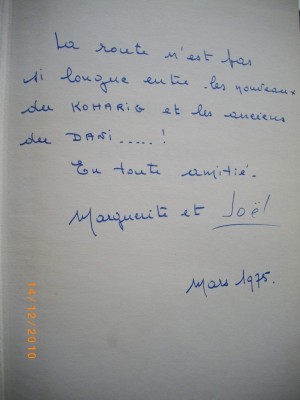 La route n'est pas
si longue entre les nouveaux
du KOHARIG et les anciens
du DANI.....!
En toute amitié.
Marguerite et Joël
Mars 1975.
14/12/2010